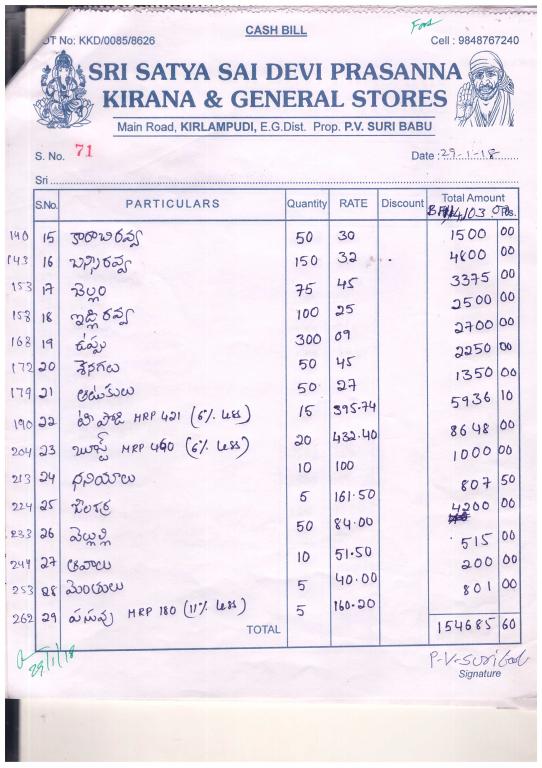 CASH BILL
OT No: KKD/0085/8626
Cell : 9848767240
SRI SATYA SAI DEVI PRASANNA
KIRANA & GENERAL STORES
Main Road, KIRLAMPUDI, E.G.Dist. Prop. P.V. SURI BABU
S. No. 71 Date : 29-1-18
Sri
S.No. PARTICULARS Quantity RATE Discount Total Amount
Ps.
140 15 కారాబిరవ్వ 50 30 1500 00
143 16 బన్సిరవ్వ 150 32 4800 00
153 17 బెల్లం 75 45 3375 00
158 18 ఇడ్లి రవ్వ 100 25 2500 00
168 19 ఉప్పు 300 09 2700 00
172 20 శెనగలు 50 45 2250 00
179 21 అటుకులు 50 27 1350 00
190 22 టీ పొడి MRP 421 (6% Less) 15 395.74 5936 10
204 23 బూస్ట్ MRP 460 (6% Less) 20 432.40 8648 00
213 24 ధనియాలు 10 100 1000 00
224 25 జీలకర్ర 5 161.50 807 50
233 26 వెల్లుల్లి 50 84.00 4200 00
244 27 ఆవాలు 10 51.50 515 00
253 28 మెంతులు 5 40.00 200 00
262 29 పసుపు MRP 180 (11% Less) 5 160.20 801 00
TOTAL 154685 60
29/1/18
P-V-Suribab
Signature